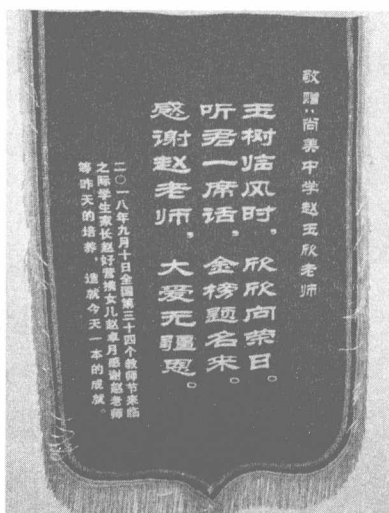 敬赠：尚美中学赵玉欣老师
玉树临风时，欣欣向荣日。
听君一席话，金榜题名来。
感谢赵老师，大爱无疆恩。
二〇一八年九月十日全国第三十四个教师节来临
之际学生家长赵好营携女儿赵卓月感谢赵老师
等昨天的培养，造就今天一本的成就。